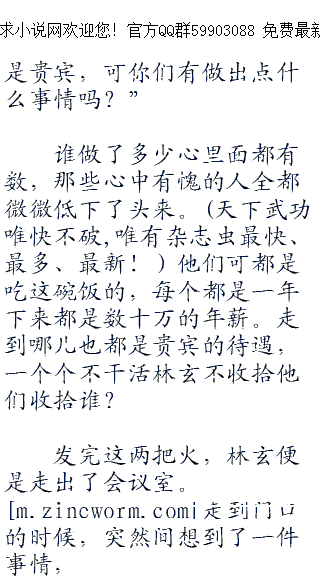 求小说网欢迎您！官方QQ群59903088 免费最新
是贵宾，可你们有做出点什
么事情吗？”
谁做了多少心里面都有
数，那些心中有愧的人全都
微微低下了头来。(天下武功
唯快不破,唯有杂志虫最快、
最多、最新！)他们可都是
吃这碗饭的，每个都是一年
下来都是数十万的年薪。走
到哪儿也都是贵宾的待遇，
一个个不干活林玄不收拾他
们收拾谁？
发完这两把火，林玄便
是走出了会议室。
[m.zincworm.com]走到门口
的时候，突然间想到了一件
事情，